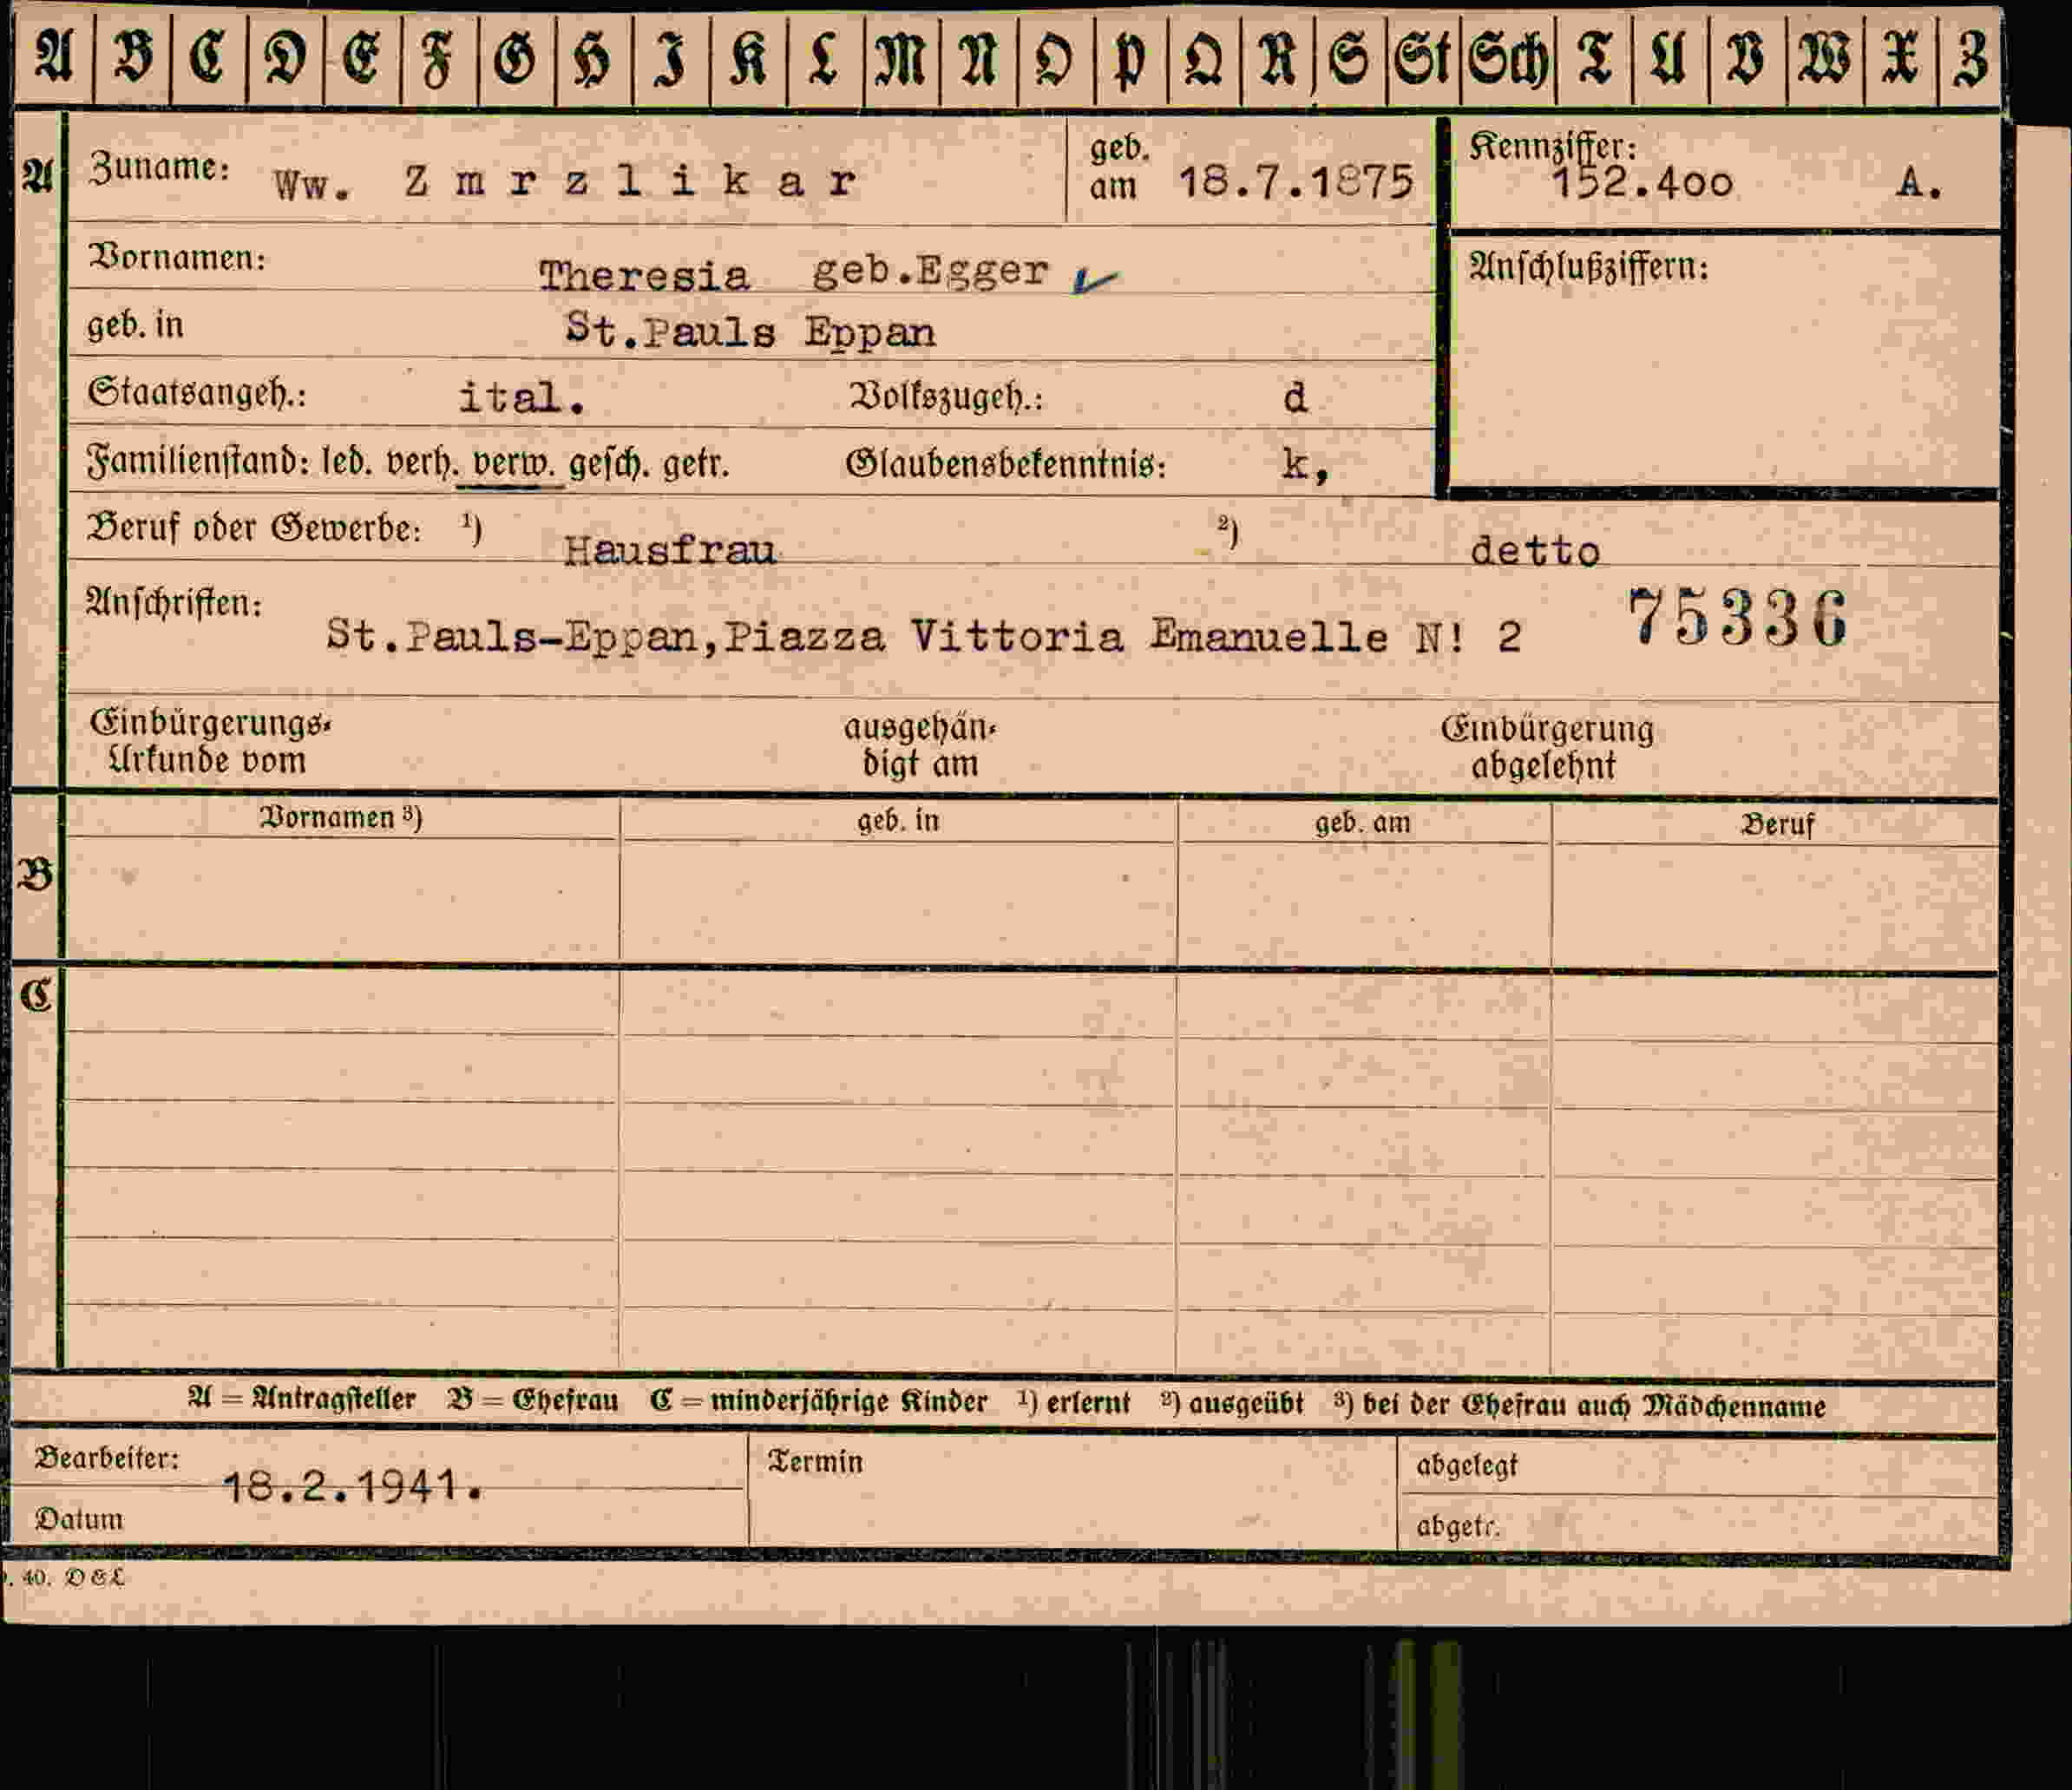 A B C D E F G H I K L M N O P Q R S St Sch T U V W X Z
A Zuname: Ww. Zmrzlikar geb. am 18.7.1875 Kennziffer: 152.400 A.
Vornamen: Theresia geb.Egger ✓ Anschlußziffern:
geb. in St.Pauls Eppan
Staatsangeh.: ital. Volkszugeh.: d
Familienstand: led. verh. verw. gesch. getr. Glaubensbekenntnis: k,
Beruf oder Gewerbe: ¹) Hausfrau ²) detto
Anschriften: St.Pauls-Eppan,Piazza Vittoria Emanuelle N! 2 75336
Einbürgerungs- ausgehän- Einbürgerung
Urkunde vom digt am abgelehnt
Vornamen ³) geb. in geb. am Beruf
B
C
A = Antragsteller B = Ehefrau C = minderjährige Kinder ¹) erlernt ²) ausgeübt ³) bei der Ehefrau auch Mädchenname
Bearbeiter: Termin abgelegt
18.2.1941.
Datum abgetr.
40. D & L